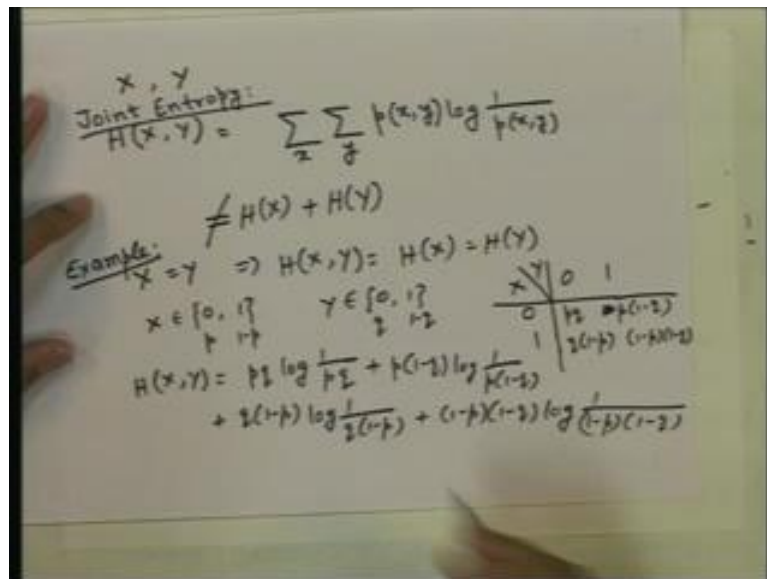 X, Y
Joint Entropy:
H(X, Y) = ∑_x ∑_y p(x,y) log 1/p(x,y)
≠ H(X) + H(Y)
Example:
X = Y ⇒ H(X, Y) = H(X) = H(Y)
X ∈ {0, 1} Y ∈ {0, 1}
p 1-p q 1-q
X Y 0 1
0 pq p(1-q)
1 q(1-p) (1-p)(1-q)
H(X, Y) = pq log 1/pq + p(1-q) log 1/p(1-q)
+ q(1-p) log 1/q(1-p) + (1-p)(1-q) log 1/(1-p)(1-q)